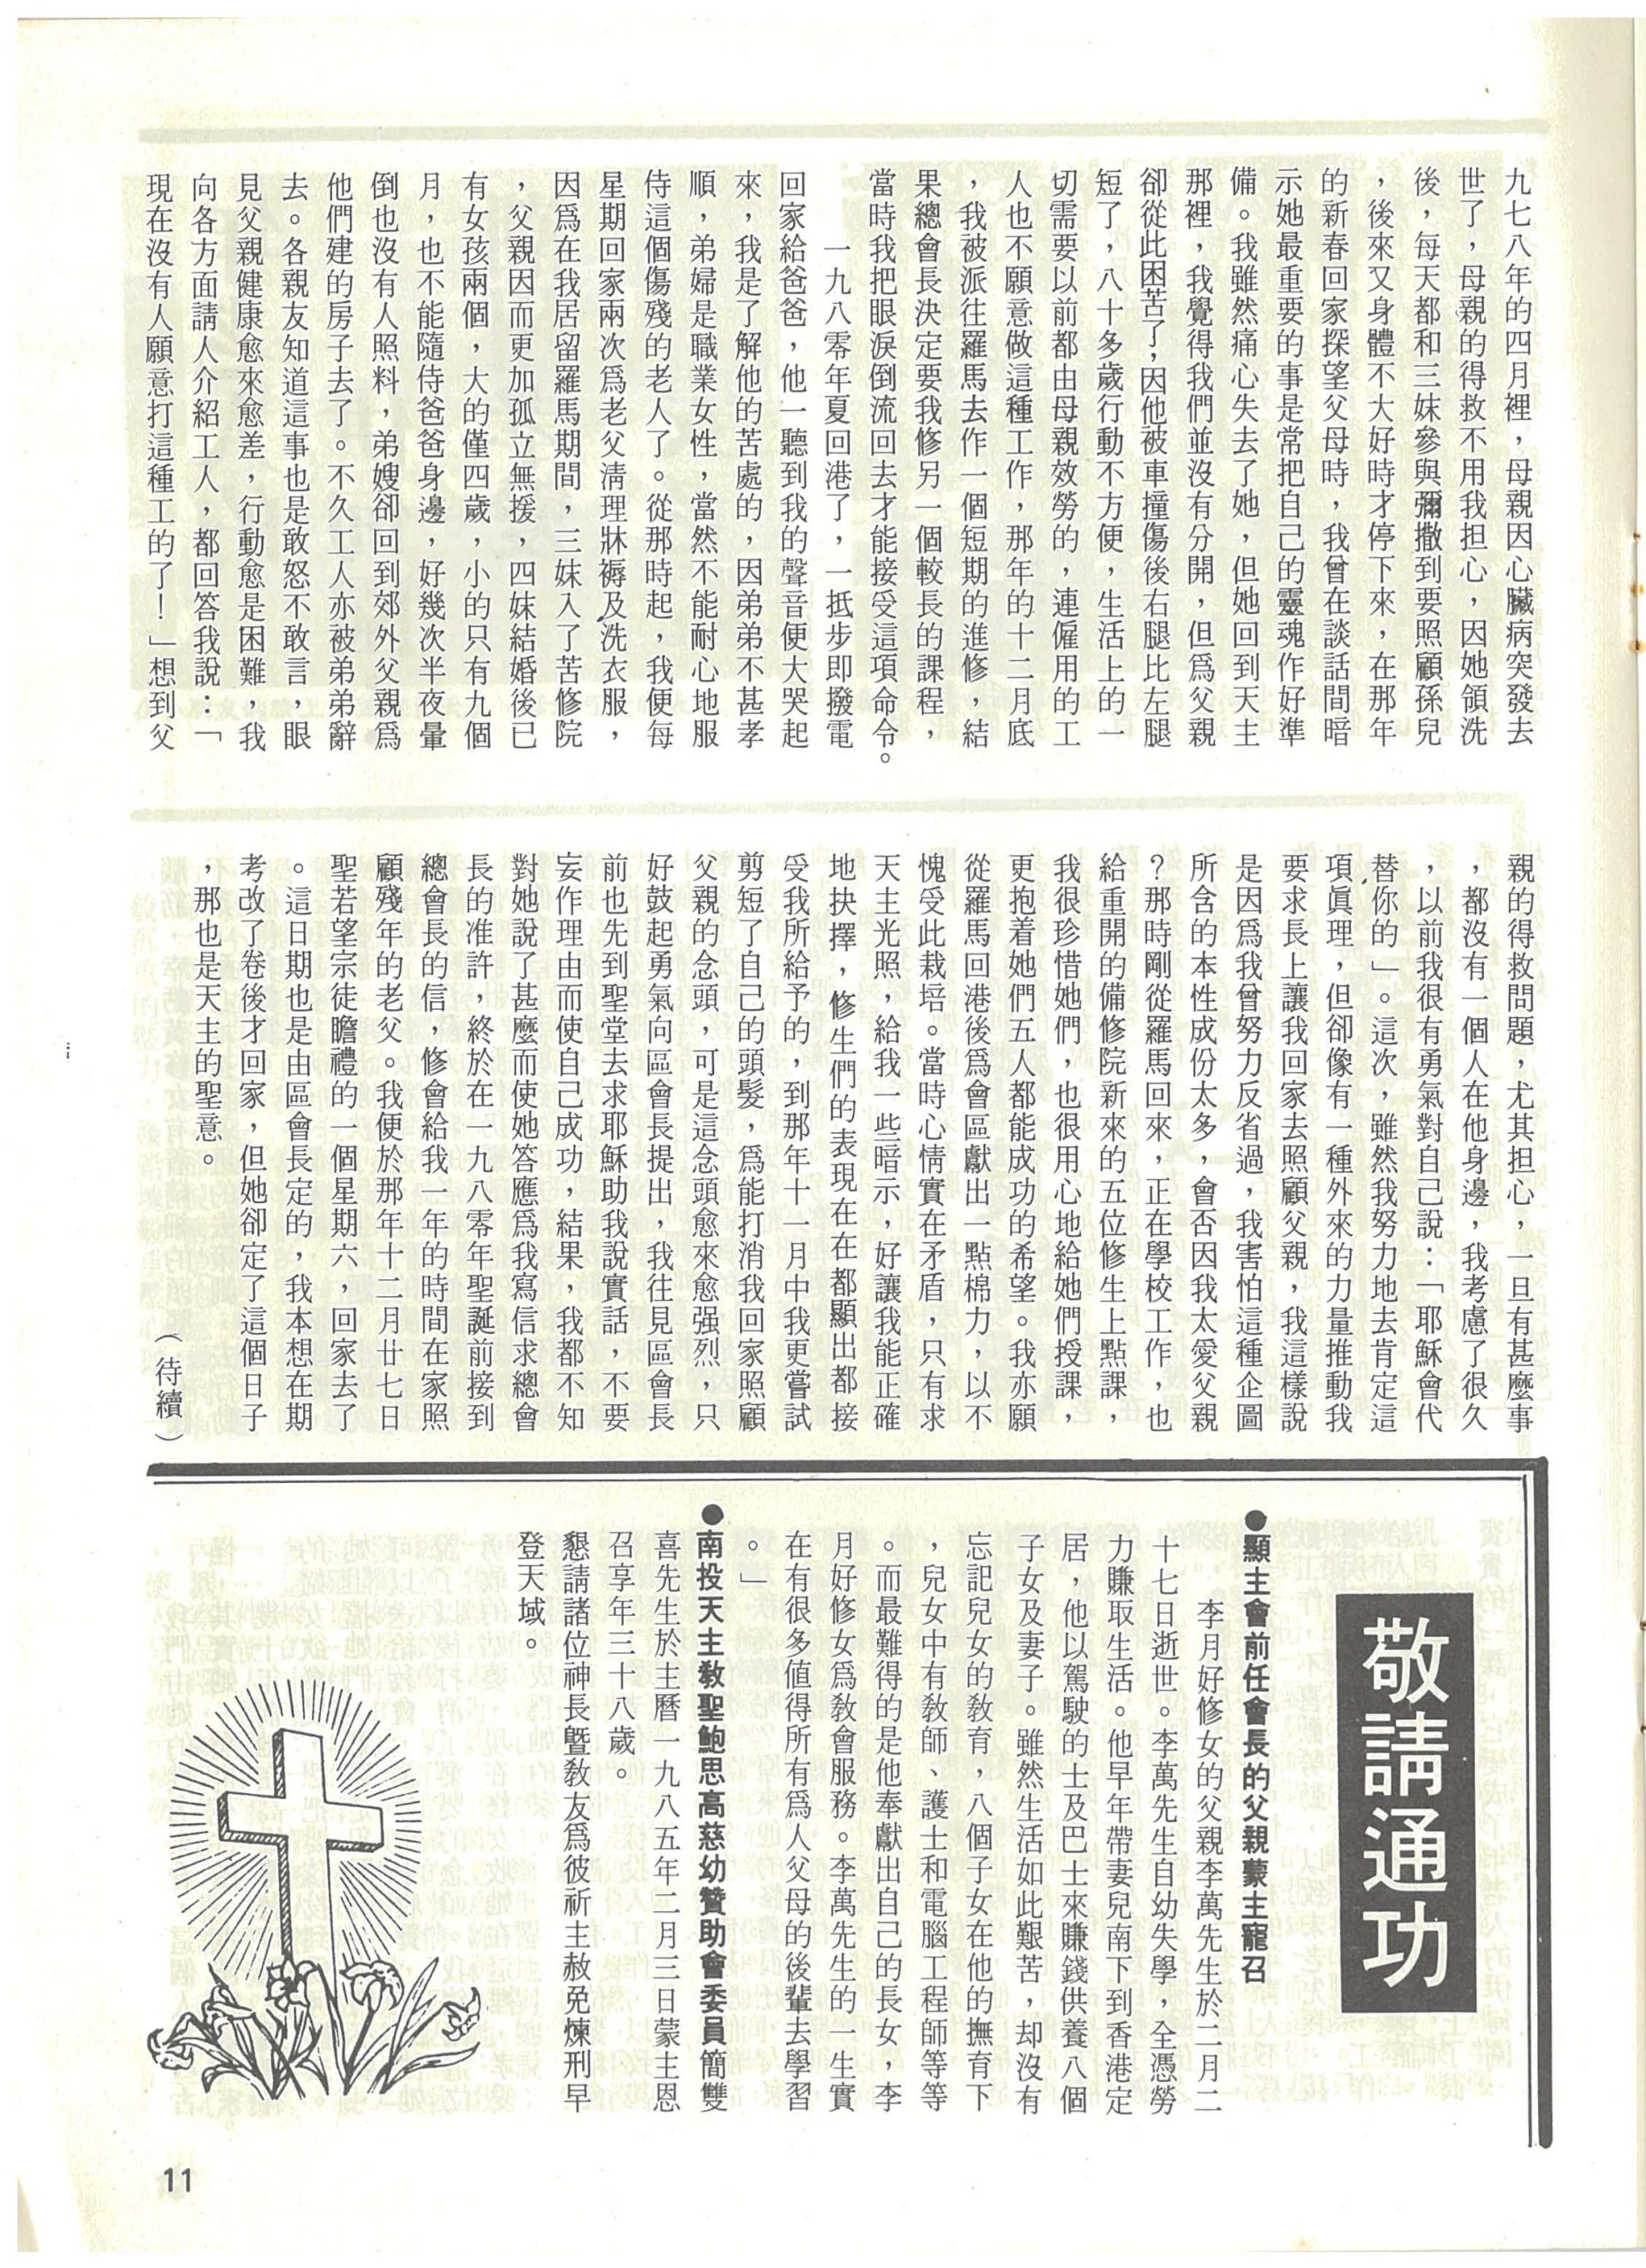 九七八年的四月裡，母親因心臟病突發去
世了，母親的得救不用我担心，因她領洗
後，每天都和三妹參與彌撒到要照顧孫兒
，後來又身體不大好時才停下來，在那年
的新春回家探望父母時，我曾在談話間暗
示她最重要的事是常把自己的靈魂作好準
備。我雖然痛心失去了她，但她回到天主
那裡，我覺得我們並沒有分開，但爲父親
卻從此困苦了，因他被車撞傷後右腿比左腿
短了，八十多歲行動不方便，生活上的一
切需要以前都由母親效勞的，連僱用的工
人也不願意做這種工作，那年的十二月底
，我被派往羅馬去作一個短期的進修，結
果總會長決定要我修另一個較長的課程，
當時我把眼淚倒流回去才能接受這項命令。
一九八零年夏回港了，一抵步即撥電
回家給爸爸，他一聽到我的聲音便大哭起
來，我是了解他的苦處的，因弟弟不甚孝
順，弟婦是職業女性，當然不能耐心地服
侍這個傷殘的老人了。從那時起，我便每
星期回家兩次爲老父清理牀褥及洗衣服，
因爲在我居留羅馬期間，三妹入了苦修院
，父親因而更加孤立無援，四妹結婚後已
有女孩兩個，大的僅四歲，小的只有九個
月，也不能隨侍爸爸身邊，好幾次半夜暈
倒也沒有人照料，弟嫂卻回到郊外父親爲
他們建的房子去了。不久工人亦被弟弟辭
去。各親友知道這事也是敢怒不敢言，眼
見父親健康愈來愈差，行動愈是困難，我
向各方面請人介紹工人，都回答我說：「
現在沒有人願意打這種工的了！」想到父
親的得救問題，尤其担心，一旦有甚麼事
，都沒有一個人在他身邊，我考慮了很久
，以前我很有勇氣對自己說：「耶穌會代
替你的」。這次，雖然我努力地去肯定這
項眞理，但卻像有一種外來的力量推動我
要求長上讓我回家去照顧父親，我這樣說
是因爲我曾努力反省過，我害怕這種企圖
所含的本性成份太多，會否因我太愛父親
？那時剛從羅馬回來，正在學校工作，也
給重開的備修院新來的五位修生上點課，
我很珍惜她們，也很用心地給她們授課，
更抱着她們五人都能成功的希望。我亦願
從羅馬回港後爲會區獻出一點棉力，以不
愧受此栽培。當時心情實在矛盾，只有求
天主光照，給我一些暗示，好讓我能正確
地抉擇，修生們的表現在在都顯出都接
受我所給予的，到那年十一月中我更嘗試
剪短了自己的頭髮，爲能打消我回家照顧
父親的念頭，可是這念頭愈來愈强烈，只
好鼓起勇氣向區會長提出，我往見區會長
前也先到聖堂去求耶穌助我說實話，不要
妄作理由而使自己成功，結果，我都不知
對她說了甚麼而使她答應爲我寫信求總會
長的准許，終於在一九八零年聖誕前接到
總會長的信，修會給我一年的時間在家照
顧殘年的老父。我便於那年十二月廿七日
聖若望宗徒瞻禮的一個星期六，回家去了
。這日期也是由區會長定的，我本想在期
考改了卷後才回家，但她卻定了這個日子
，那也是天主的聖意。
（待續）
敬請通功
●顯主會前任會長的父親蒙主寵召
李月好修女的父親李萬先生於二月二
十七日逝世。李萬先生自幼失學，全憑勞
力賺取生活。他早年帶妻兒南下到香港定
居，他以駕駛的士及巴士來賺錢供養八個
子女及妻子。雖然生活如此艱苦，却沒有
忘記兒女的教育，八個子女在他的撫育下
，兒女中有教師、護士和電腦工程師等等
。而最難得的是他奉獻出自己的長女，李
月好修女爲教會服務。李萬先生的一生實
在有很多值得所有爲人父母的後輩去學習
。」
●南投天主教聖鮑思高慈幼贊助會委員簡雙
喜先生於主曆一九八五年二月三日蒙主恩
召享年三十八歲。
懇請諸位神長曁教友爲彼祈主赦免煉刑早
登天域。
11